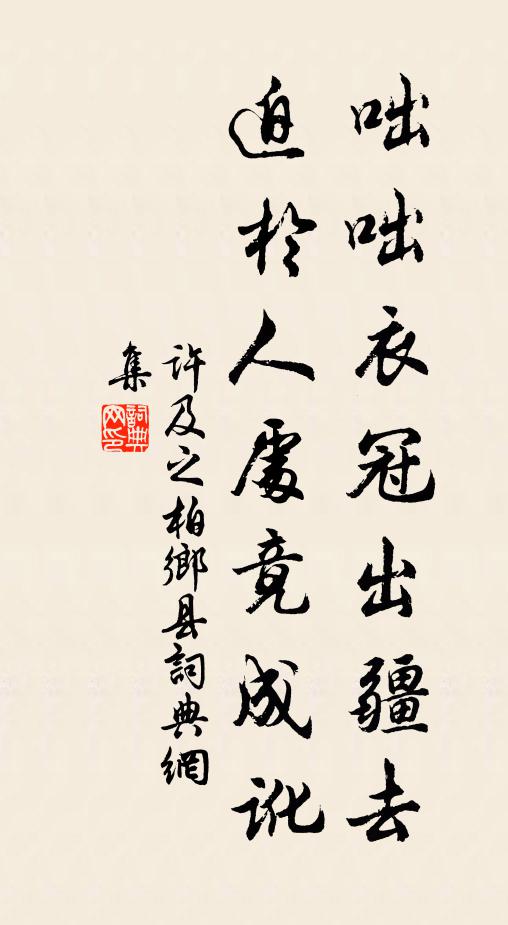 咄咄衣冠出疆去
迫於人處竟成訛
许及之柏鄉县詞典網
集
詞典网印